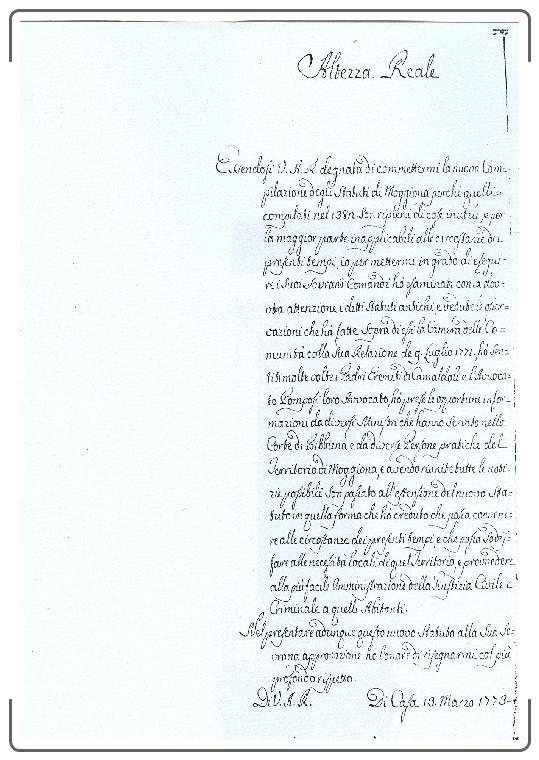 Altezza Reale
Essendosi V. A. R. degnata di commettermi la nuova Com=
pilazione degli Statuti di Moggiona perchè quelli
compilati nel 1382 son ripieni di cose inutili, e per
la maggior parte inapplicabili alle circostanze dei
presenti tempi, io per mettermi in grado di esegui=
re i Suoi Sovrani Comandi hò esaminati con la dov=
uta attenzione i detti Statuti antichi e vedute le osser=
vazioni che hà fatte sopra di essi la Camera delle Co=
munità colla Sua Relazione de 9. Luglio 1771, hò sen=
titi molte volte i Padri Eremiti di Camaldoli e l'Avvoca=
to Pomposi loro Avvocato, hò prese le opportune infor=
mazioni da diversi Ministri che hanno servito nella
Corte di Bibbiena e da diverse Persone pratiche del
Territorio di Moggiona, e avendo riunite tutte le noti=
zie possibili son passato all'estensione del nuovo Sta=
tuto in quella forma che hò creduto che possa conveni=
re alle circostanze dei presenti tempi e che possa sodis=
fare alle necessità locali di quel Territorio, e provvedere
alla più facile Amministrazione della Giustizia Civile e
Criminale a quelli Abitanti.
Nel presentare adunque questo nuovo Statuto alla Sua So=
vrana approvazione ho l'onore di rassegnarmi col più
profondo rispetto.
Di V. A. R. Di Casa 13. Marzo 1773